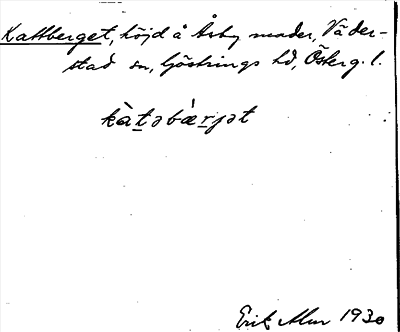 Kattberget, höjd å Årby mader, Väder-
stad sn, Göstrings hd, Österg. l.
kàt̲əbæ̀r̲jət
Erik Alm 1930